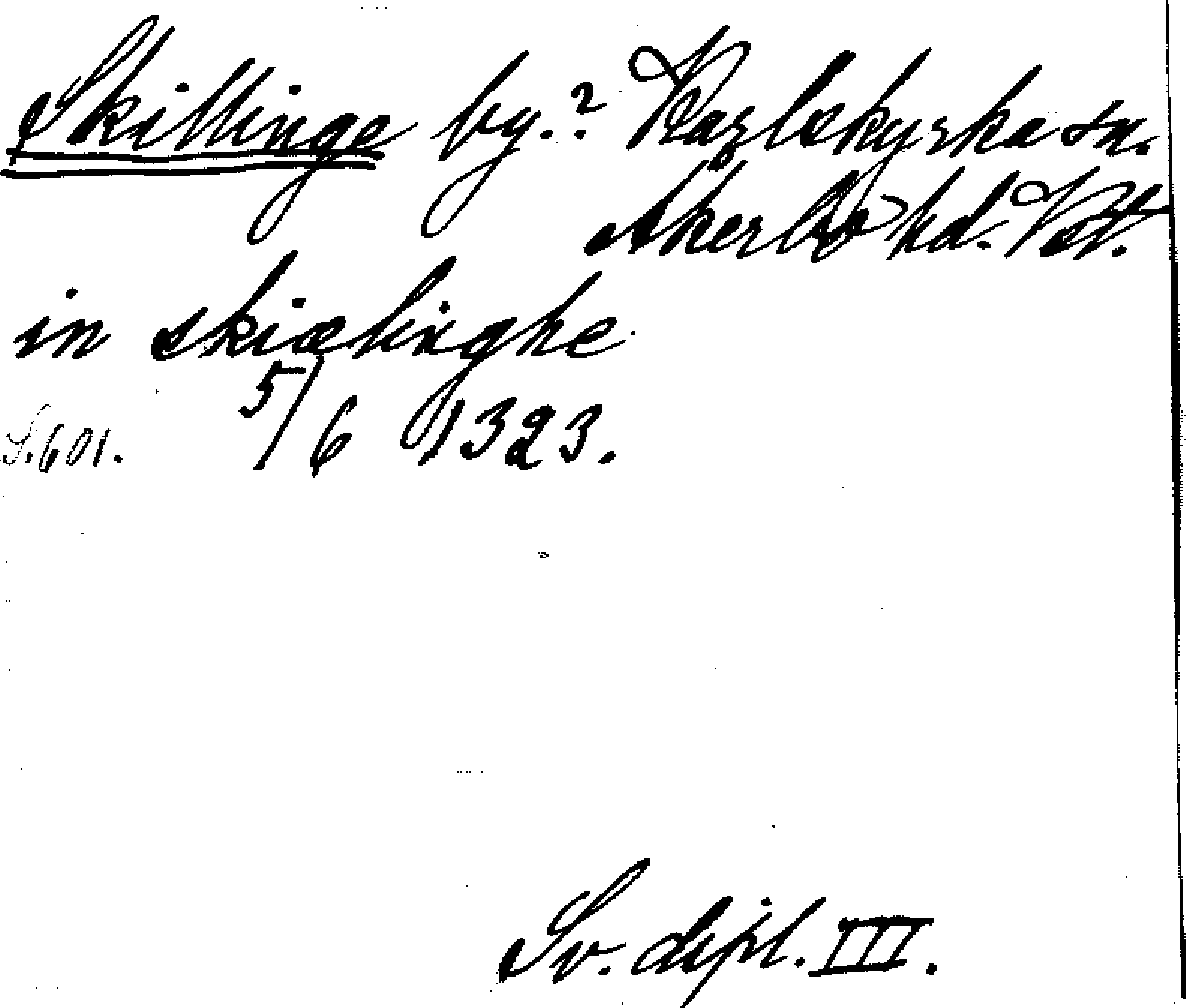 Skillinge by.? Karlskyrka sn.
Åkerbo hd. Vstl.
in skiælinghe
5/6 1323.
S. 601.
Sv. dipl. III.